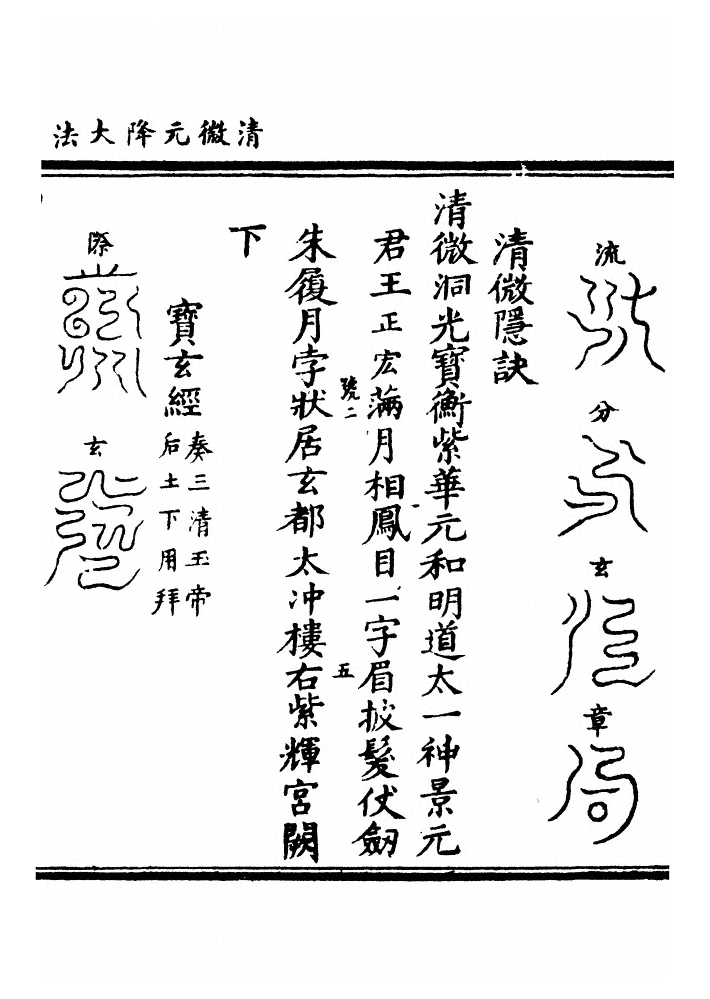 清微元降大法
流
分
玄
章
清微隱訣
清微洞光寶衡紫華元和明道太一神景元
君王正宏滿月相鳳目一字眉披髮仗劒
號二
五
朱履月孛狀居玄都太冲樓右紫輝宮闕
下
寶玄經
奏三清玉帝
后土下用拜
際
玄